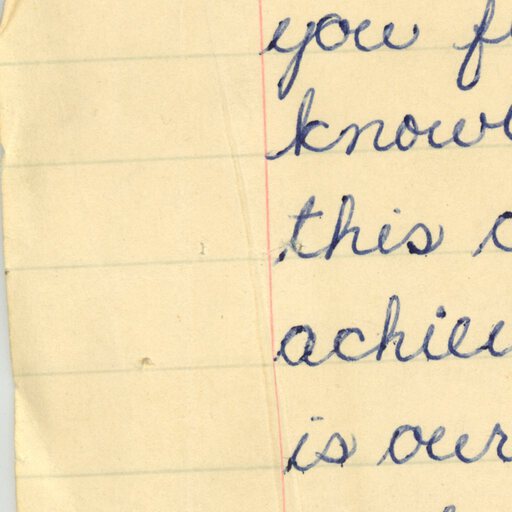 you f
knowl
this c
achiev
is our